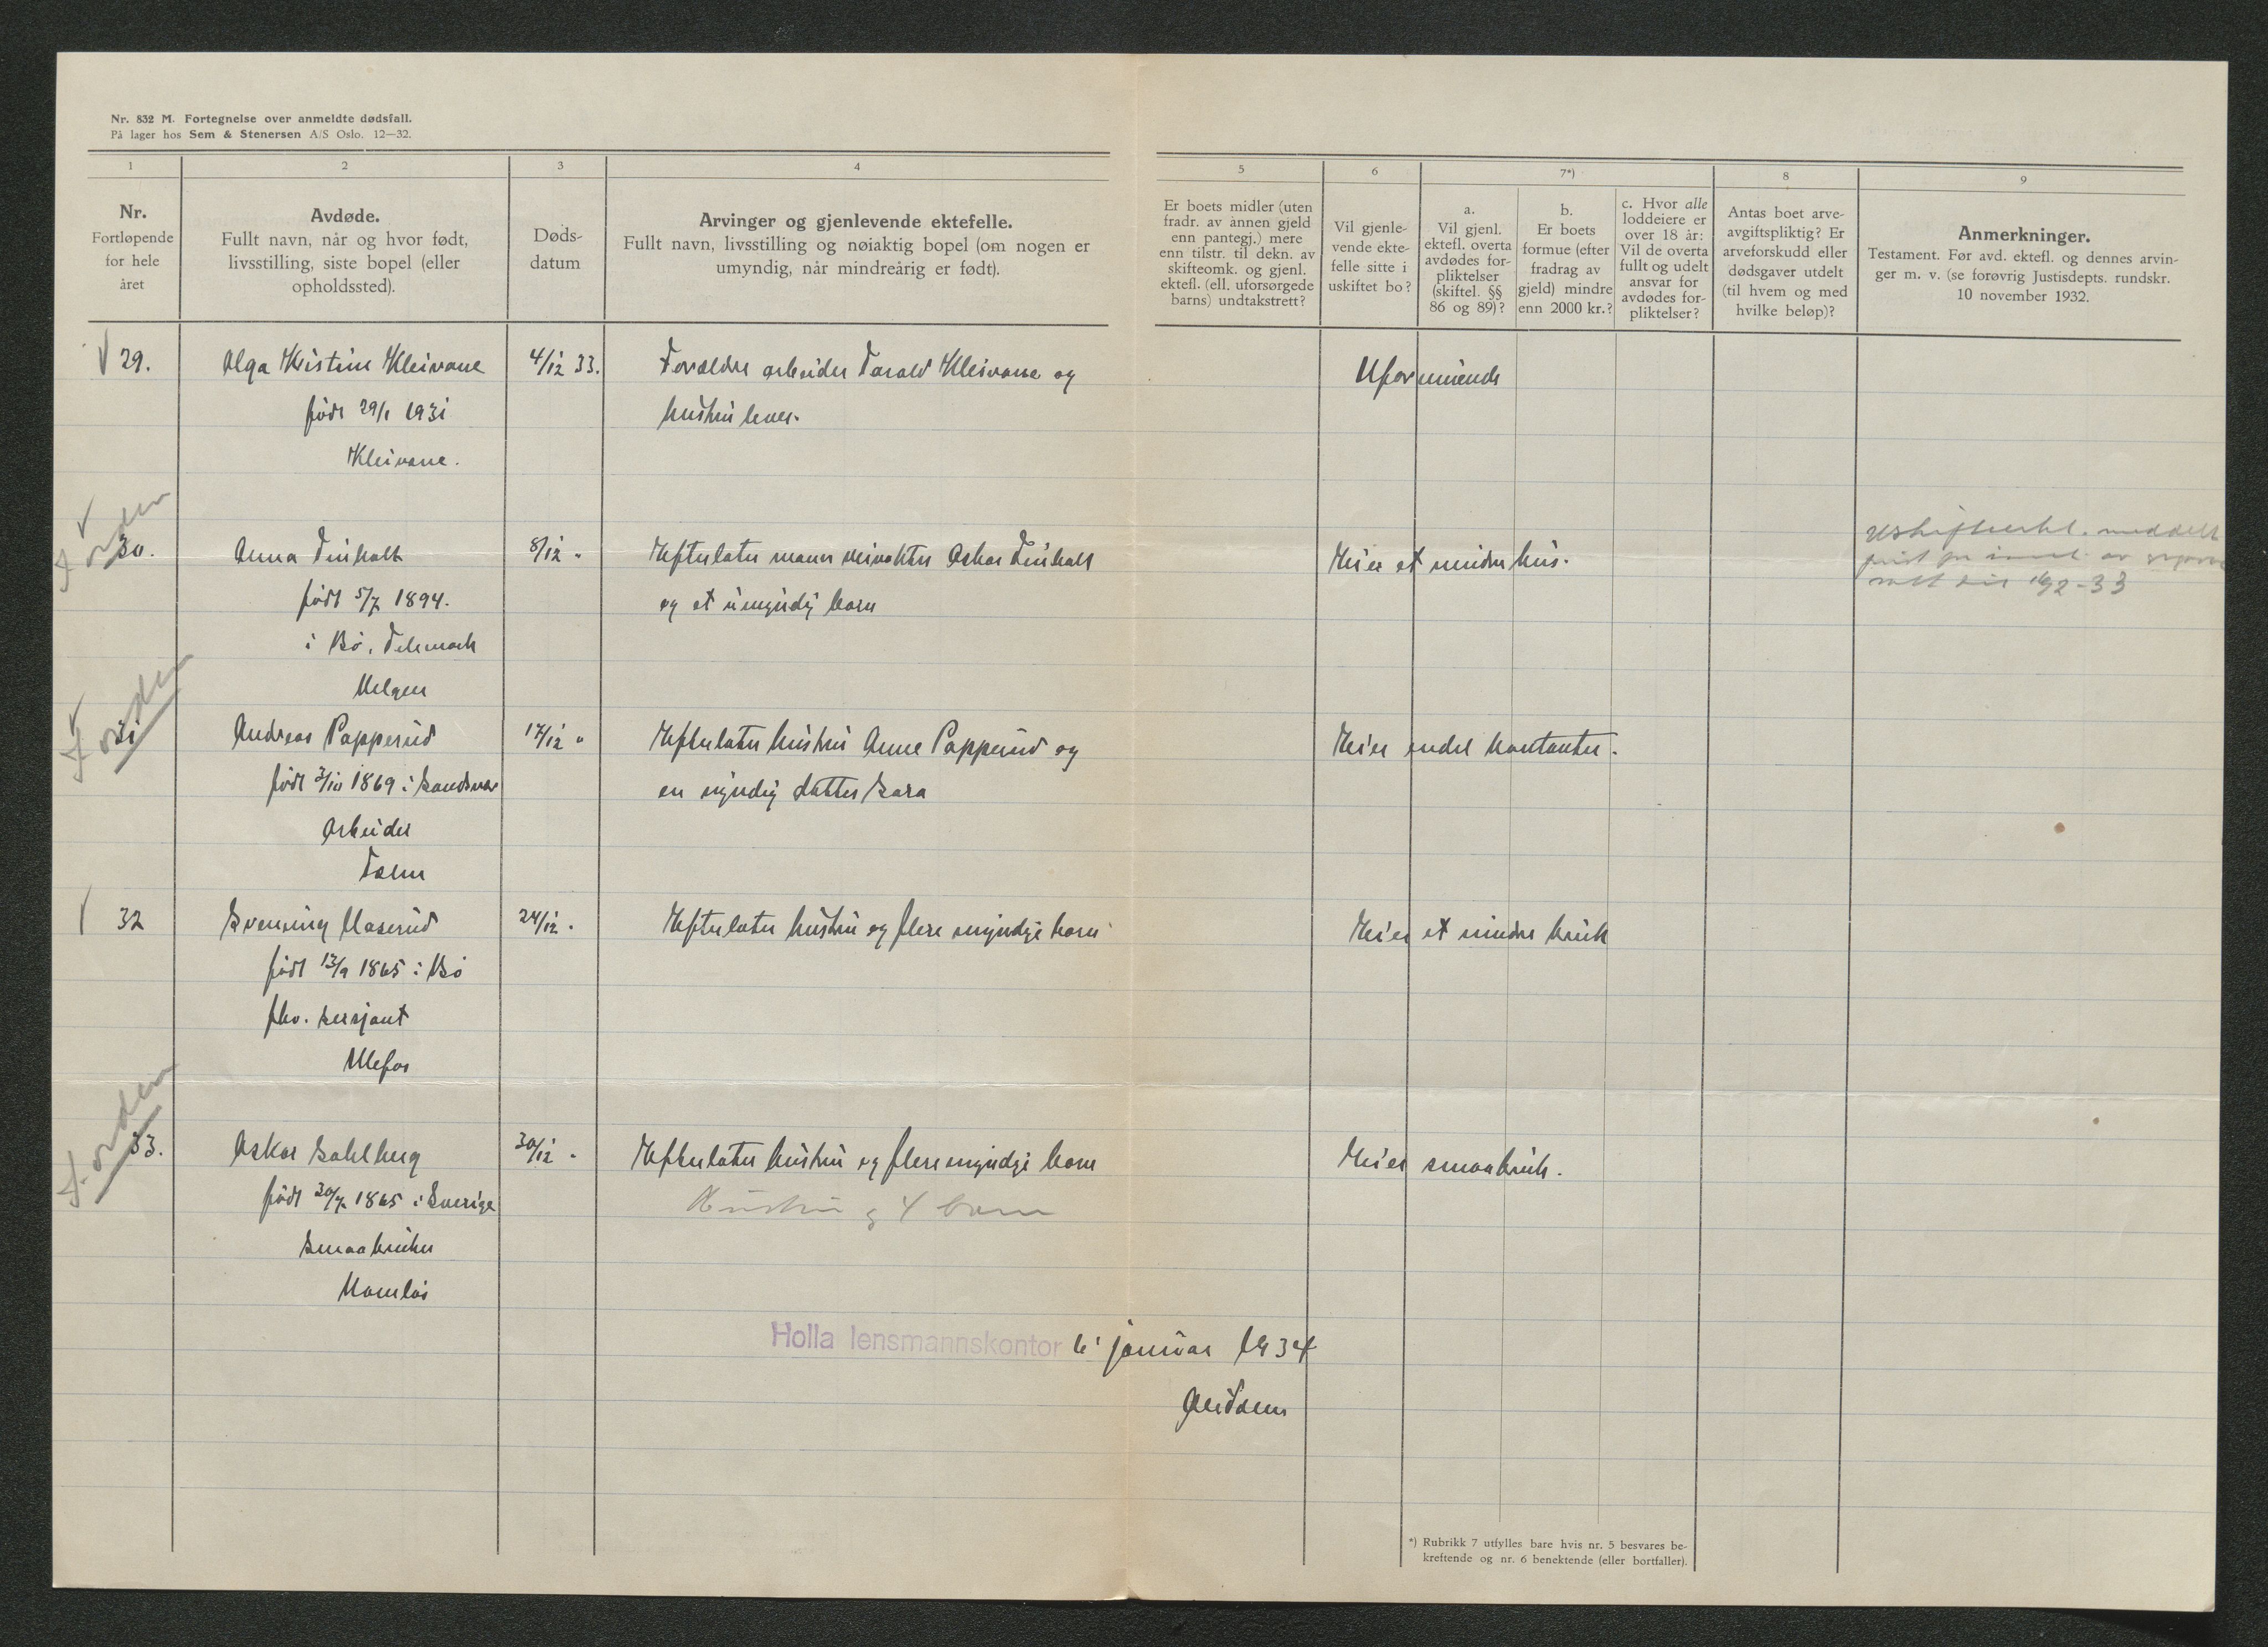 Nr. 832 M. Fortegnelse over anmeldte dødsfall.
På lager hos Sem & Stenersen A/S Oslo. 12—32.
1
2
3
4
5
6
7*)
8
9
Nr.
Fortløpende
for hele
året
Avdøde.
Fullt navn, når og hvor født,
livsstilling, siste bopel (eller
opholdssted).
Døds-
datum
Arvinger og gjenlevende ektefelle.
Fullt navn, livsstilling og nøiaktig bopel (om nogen er
umyndig, når mindreårig er født).
Er boets midler (uten
fradr. av annen gjeld
enn pantegj.) mere
enn tilstr. til dekn. av
skifteomk. og gjenl.
ektefl. (ell. uforsørgede
barns) undtakstrett?
Vil gjenle-
vende ekte-
felle sitte i
uskiftet bo?
a.
Vil gjenl.
ektefl. overta
avdødes for-
pliktelser
(skiftel. §§
86 og 89)?
b.
Er boets
formue (efter
fradrag av
gjeld) mindre
enn 2000 kr.?
c. Hvor alle
loddeiere er
over 18 år:
Vil de overta
fullt og udelt
ansvar for
avdødes for-
pliktelser?
Antas boet arve-
avgiftspliktig? Er
arveforskudd eller
dødsgaver utdelt
(til hvem og med
hvilke beløp)?
Anmerkninger.
Testament. Før avd. ektefl. og dennes arvin-
ger m. v. (se forøvrig Justisdepts. rundskr.
10 november 1932.
29. Olga Kristine Kleivane 4/12 33. Forældre arbeider Tarald Kleivane og Uformuende
født 29/1 1931 hustru lever.
Kleivane.
I orden
30. Anna 8/12 " Efterlater mann Oskar
født 5/7 1894. og et umyndig barn
Eier et mindre hus.
meddelt
33
i Bø, Telemark
Helgen
I orden
31 Andreas Papperud 17/12 " Efterlater hustru Anne Papperud og Eier endel kontanter.
født 1869 i Sandsvær en myndig datter Sara
Arbeider
Dalen
32 Svenning Haserud 24/12 " Efterlater hustru og flere myndige barn Eier et mindre bruk
født 13/9 1865 i Bø
fhv. sersjant
Ulefos
I orden
33. Oskar Sahlberg 30/12 " Efterlater hustru og flere myndige barn Eier smaabruk.
født 20/7 1865 i Sverige Hustru og 4 barn
Smaabruker
Holla lensmannskontor 6' januar 1934
*) Rubrikk 7 utfylles bare hvis nr. 5 besvares be-
kreftende og nr. 6 benektende (eller bortfaller).